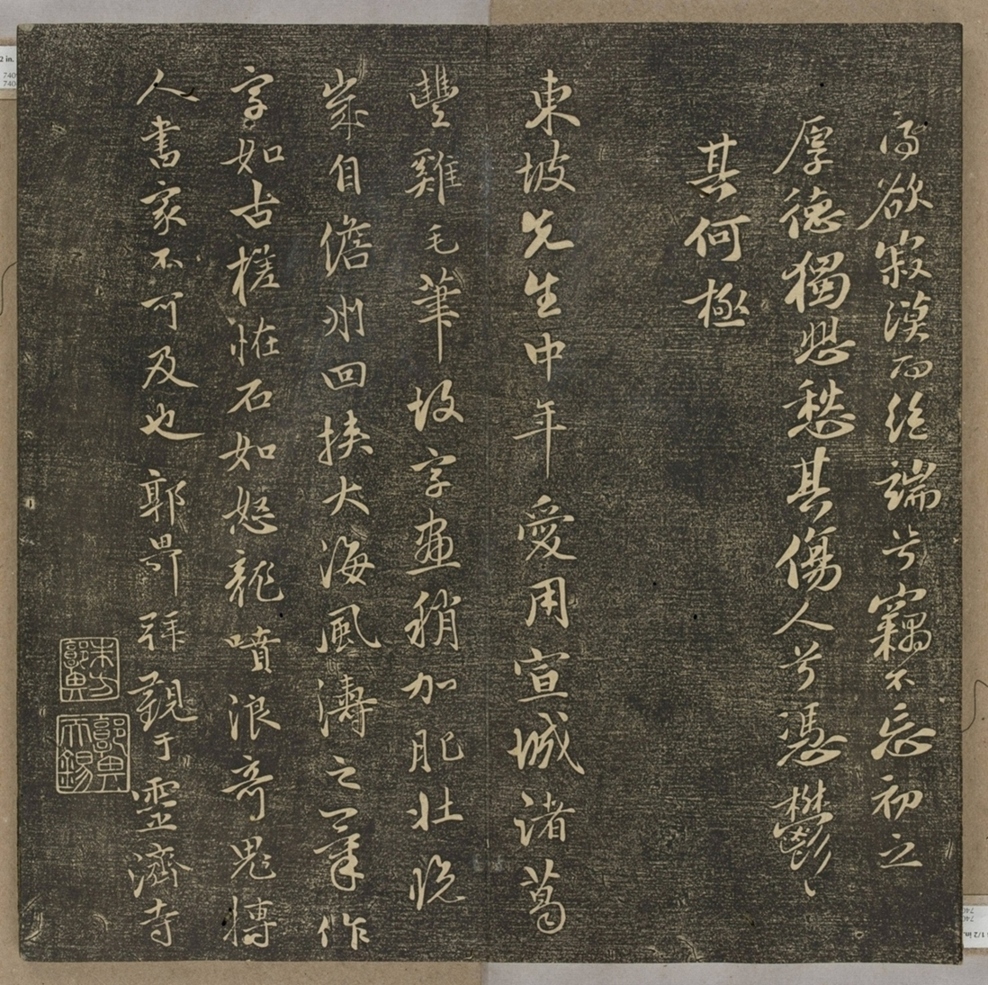 欲寂漠而絕端兮竊不忘初之
厚德獨愁其傷人兮憑鬱〻
其何極
東坡先生中年愛用宣城諸葛
豐雞毛筆故字畫稍加肥壯晚
歲自儋州回挾大海風濤之氣作
字如古槎怪石如怒龍噴浪奇鬼搏
人書家不可及也 郭畀拜觀于靈濟寺
朱方郭畀
郭畀天錫